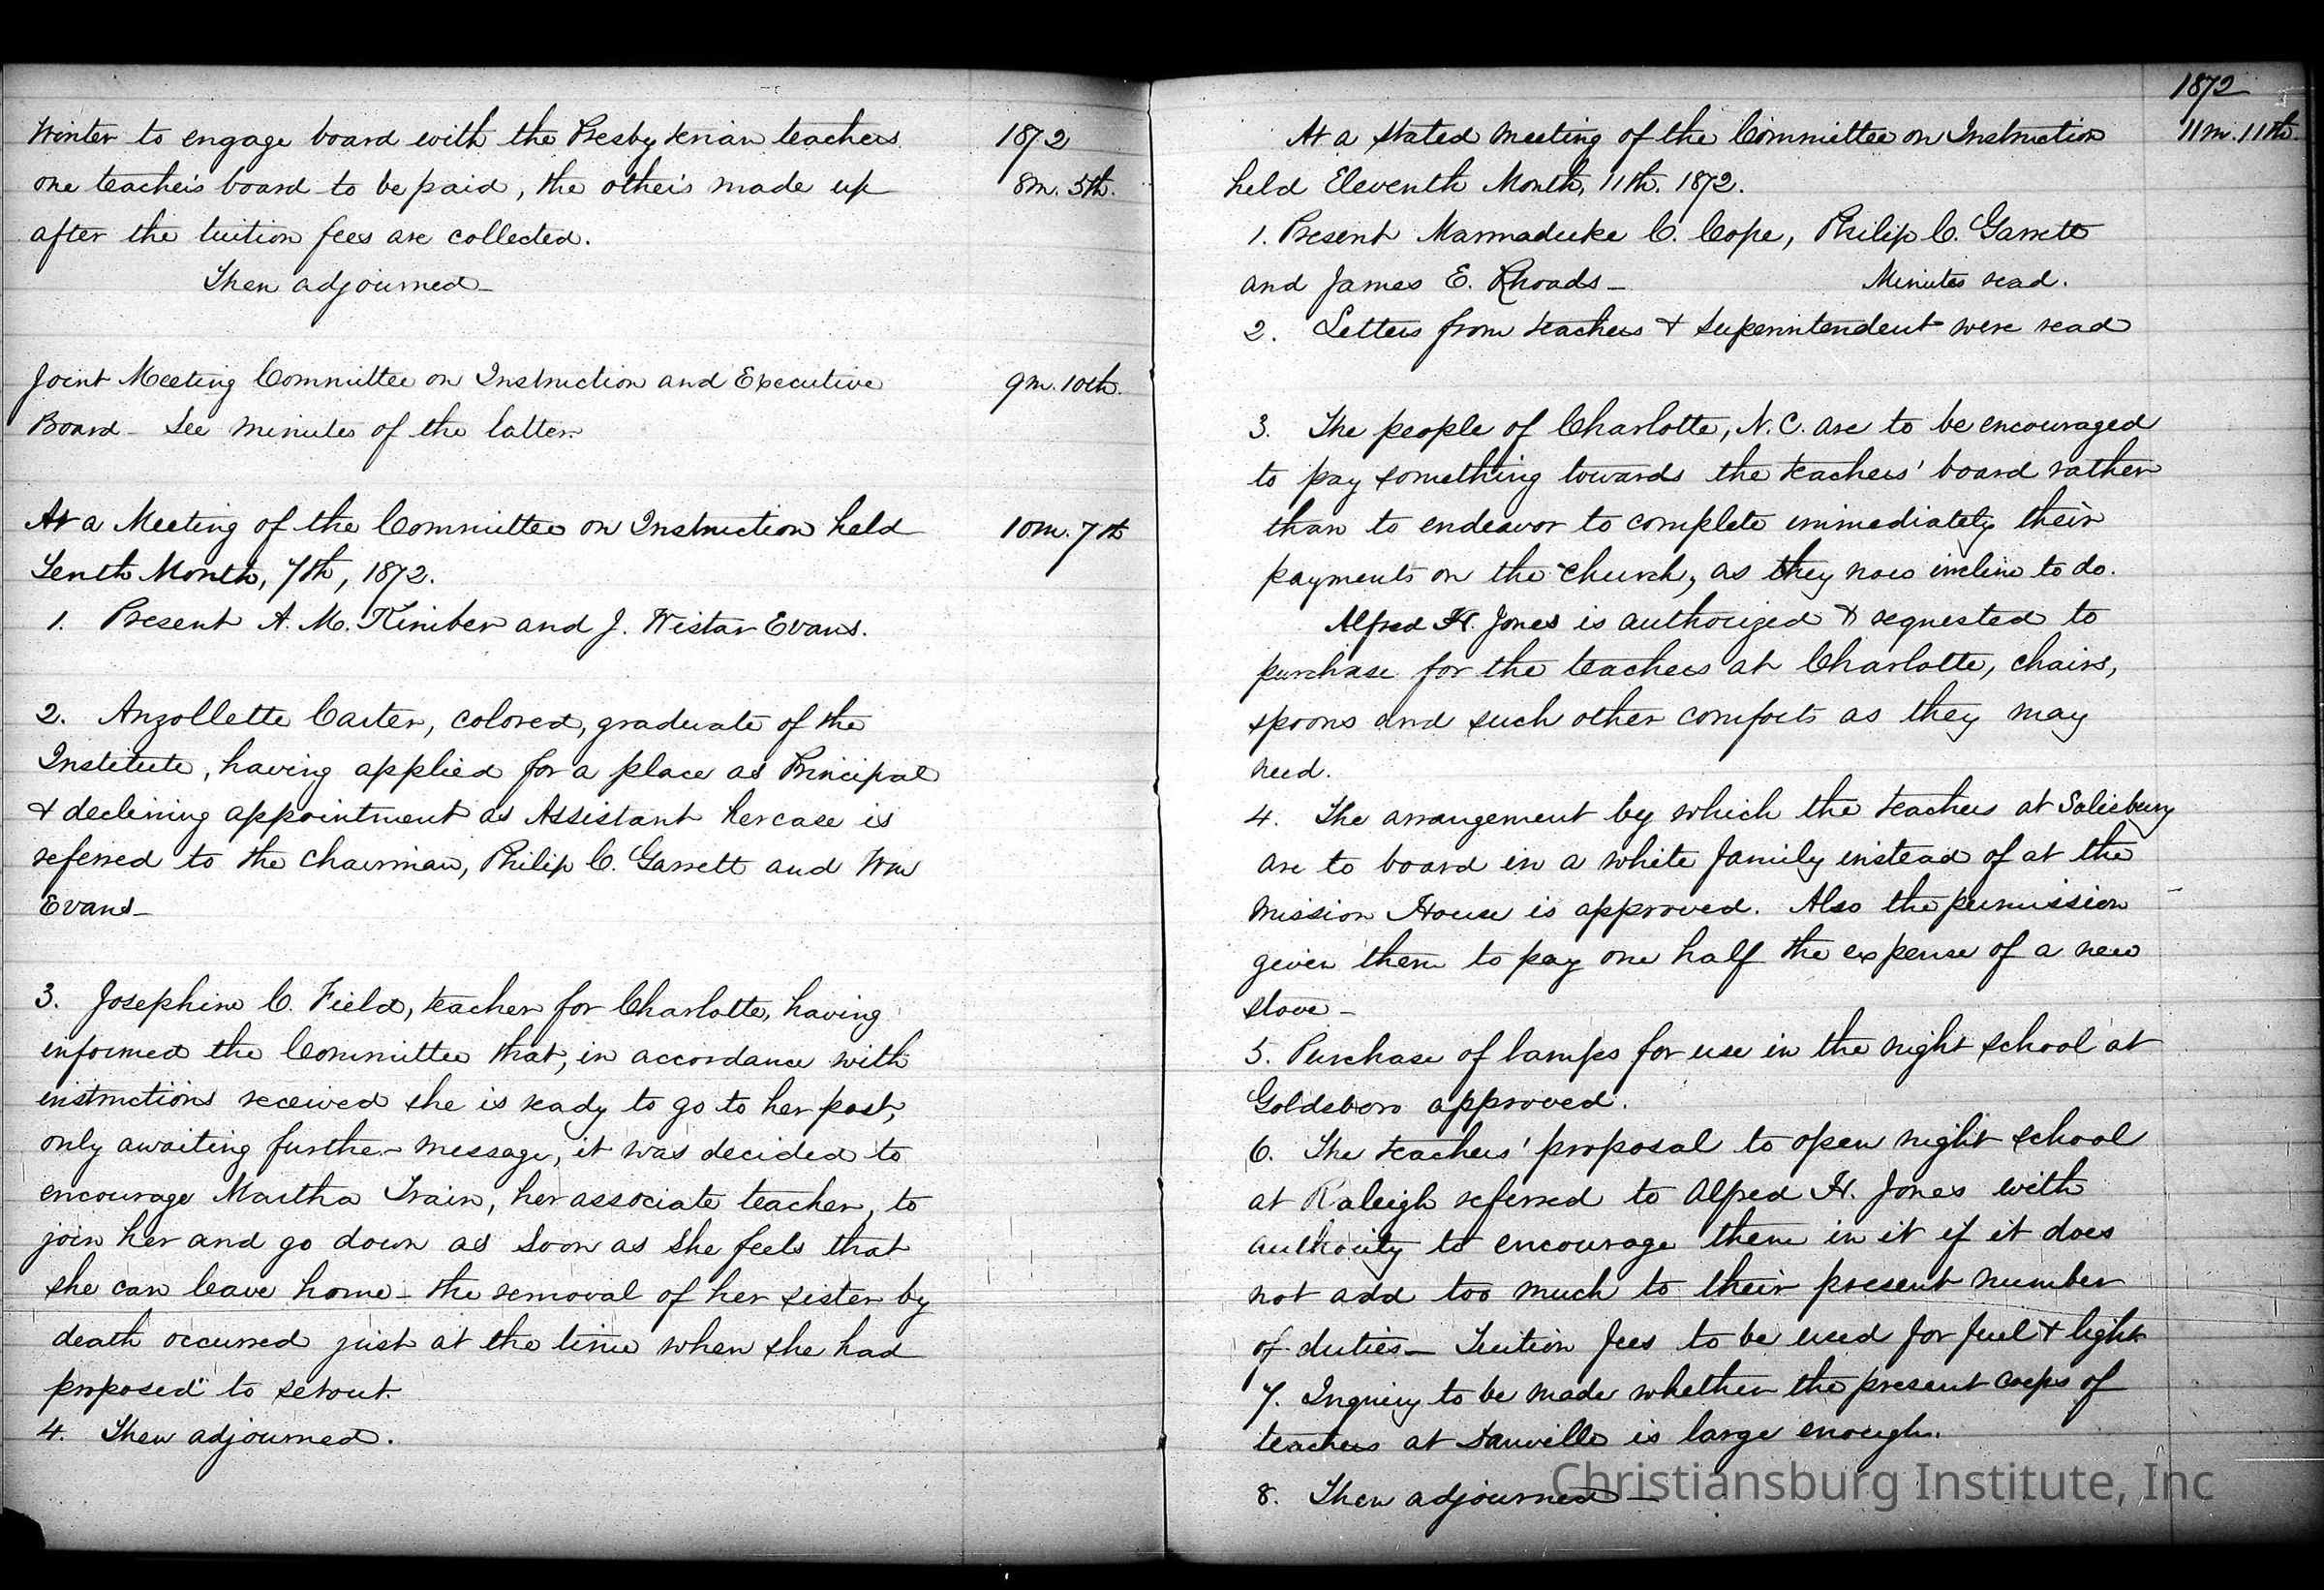 Winter to engage board with the Presbyterian teachers 1872
one teacher's board to be paid, the other's made up 8m. 5th.
after the tuition fees are collected.
Then adjourned_
Joint Meeting Committee on Instruction and Executive 9m. 10th.
Board_ See minutes of the latter.
At a Meeting of the Committee on Instruction held 10m. 7th
Tenth Month, 7th, 1872.
1. Present A. M. Kimber and J. Wistar Evans.
2. Anzollette Carter, colored, graduate of the
Institute, having applied for a place as Principal
& declining appointment as Assistant her case is
referred to the Chairman, Philip C. Garrett and Wm
Evans_
3. Josephine C. Field, teacher for Charlotte, having
informed the Committee that, in accordance with
instructions received she is ready to go to her post,
only awaiting further message, it was decided to
encourage Martha Train, her associate teacher, to
join her and go down as soon as she feels that
she can leave home_ the removal of her sister by
death occurred just at the time when she had
proposed to set out.
4. Then adjourned.
1872
At a Stated Meeting of the Committee on Instruction 11m. 11th.
held Eleventh Month, 11th. 1872.
1. Present Marmaduke C. Cope, Philip C. Garrett
and James E. Rhoads_ Minutes read.
2. Letters from teachers & Superintendent were read
3. The people of Charlotte, N.C. are to be encouraged
to pay something towards the teachers' board rather
than to endeavor to complete immediately their
payments on the church, as they now incline to do.
Alfred H. Jones is authorized & requested to
purchase for the teachers at Charlotte, chairs,
spoons and such other comforts as they may
need.
4. The arrangement by which the teachers at Salisbury
are to board in a white family instead of at the
Mission House is approved. Also the permission
given them to pay one half the expense of a new
stove_
5. Purchase of lamps for use in the night school at
Goldsboro approved.
6. The teachers' proposal to open night school
at Raleigh referred to Alfred H. Jones with
authority to encourage them in it if it does
not add too much to their present number
of duties_ Tuition fees to be used for fuel & light
7. Inquiry to be made whether the present corps of
teachers at Danville is large enough.
8. Then adjourned_
Christiansburg Institute, Inc